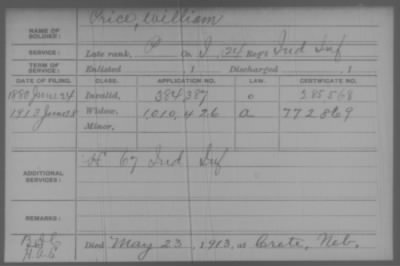 Price, William
NAME OF SOLDIER:
SERVICE: Late rank, P Co. I, 24 Reg't Ind Inf
TERM OF SERVICE: Enlisted , 1 Discharged , 1
DATE OF FILING. CLASS. APPLICATION NO. LAW. CERTIFICATE NO.
1880 June 24 Invalid, 384,387 c 285568
1913 June Widow, 1,010,426 a 772869
Minor,
H 67 Ind Inf
ADDITIONAL SERVICES:
REMARKS:
Died May 23, 1913, at Crete, Neb.